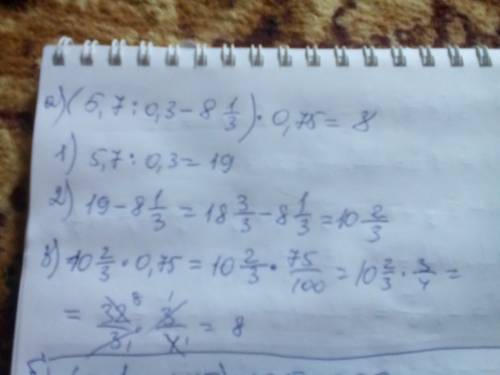 а) (5,7 : 0,3 − 8 1/3) · 0,75 = 8
1) 5,7 : 0,3 = 19
2) 19 − 8 1/3 = 18 3/3 − 8 1/3 = 10 2/3
3) 10 2/3 · 0,75 = 10 2/3 · 75/100 = 10 2/3 · 3/4 =
= 32 8/3 1 · 3 1/4 1 = 8